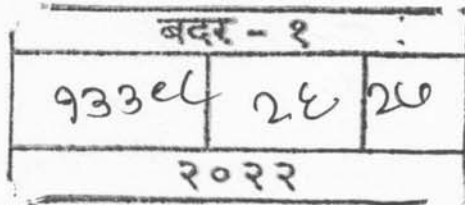 बदर - १
१३३९८ २६ २७
२०२२